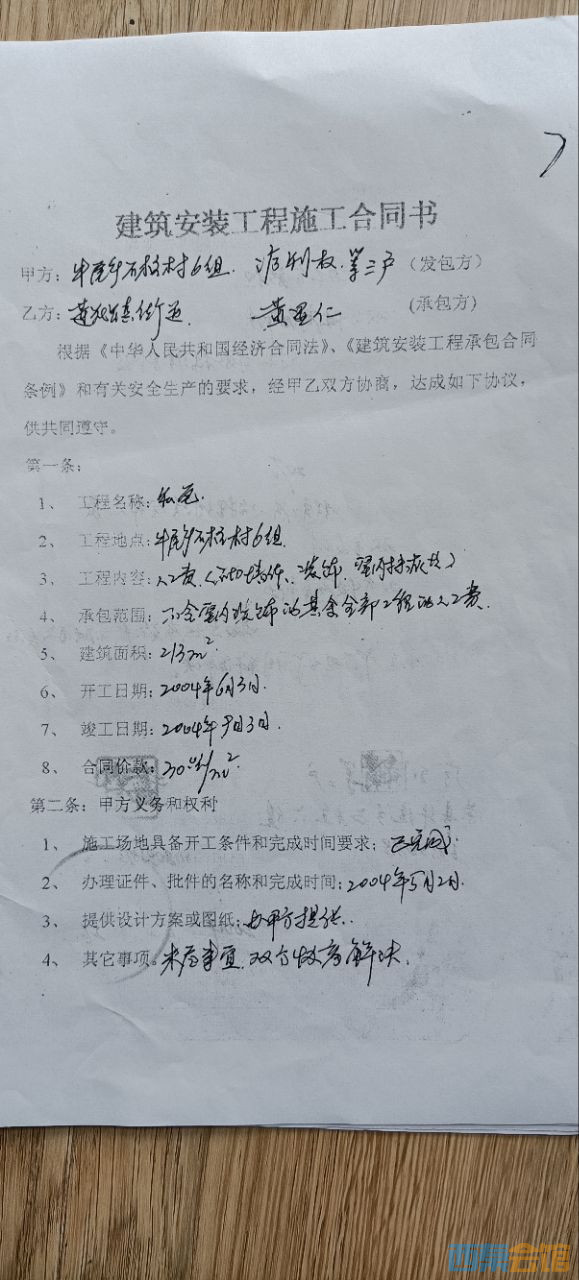 建筑安装工程施工合同书
甲方：石柱村6组 （发包方）
乙方：街道 黄 仁 (承包方)
根据《中华人民共和国经济合同法》、《建筑安装工程承包合同
条例》和有关安全生产的要求，经甲乙双方协商，达成如下协议，
供共同遵守。
第一条：
1、 工程名称：
2、 工程地点：石柱村6组
3、 工程内容：人工费
4、 承包范围：不含室内装饰的其余全部工程的人工费.
5、 建筑面积：213m²
6、 开工日期：2004年6月3日.
7、 竣工日期：2004年9月3日.
8、 合同价款：/m²
第二条：甲方义务和权利
1、 施工场地具备开工条件和完成时间要求；已完成
2、 办理证件、批件的名称和完成时间：2004年5月2日.
3、 提供设计方案或图纸：由甲方提供.
4、 其它事项。未尽事宜.双方协商解决.
西祠会馆